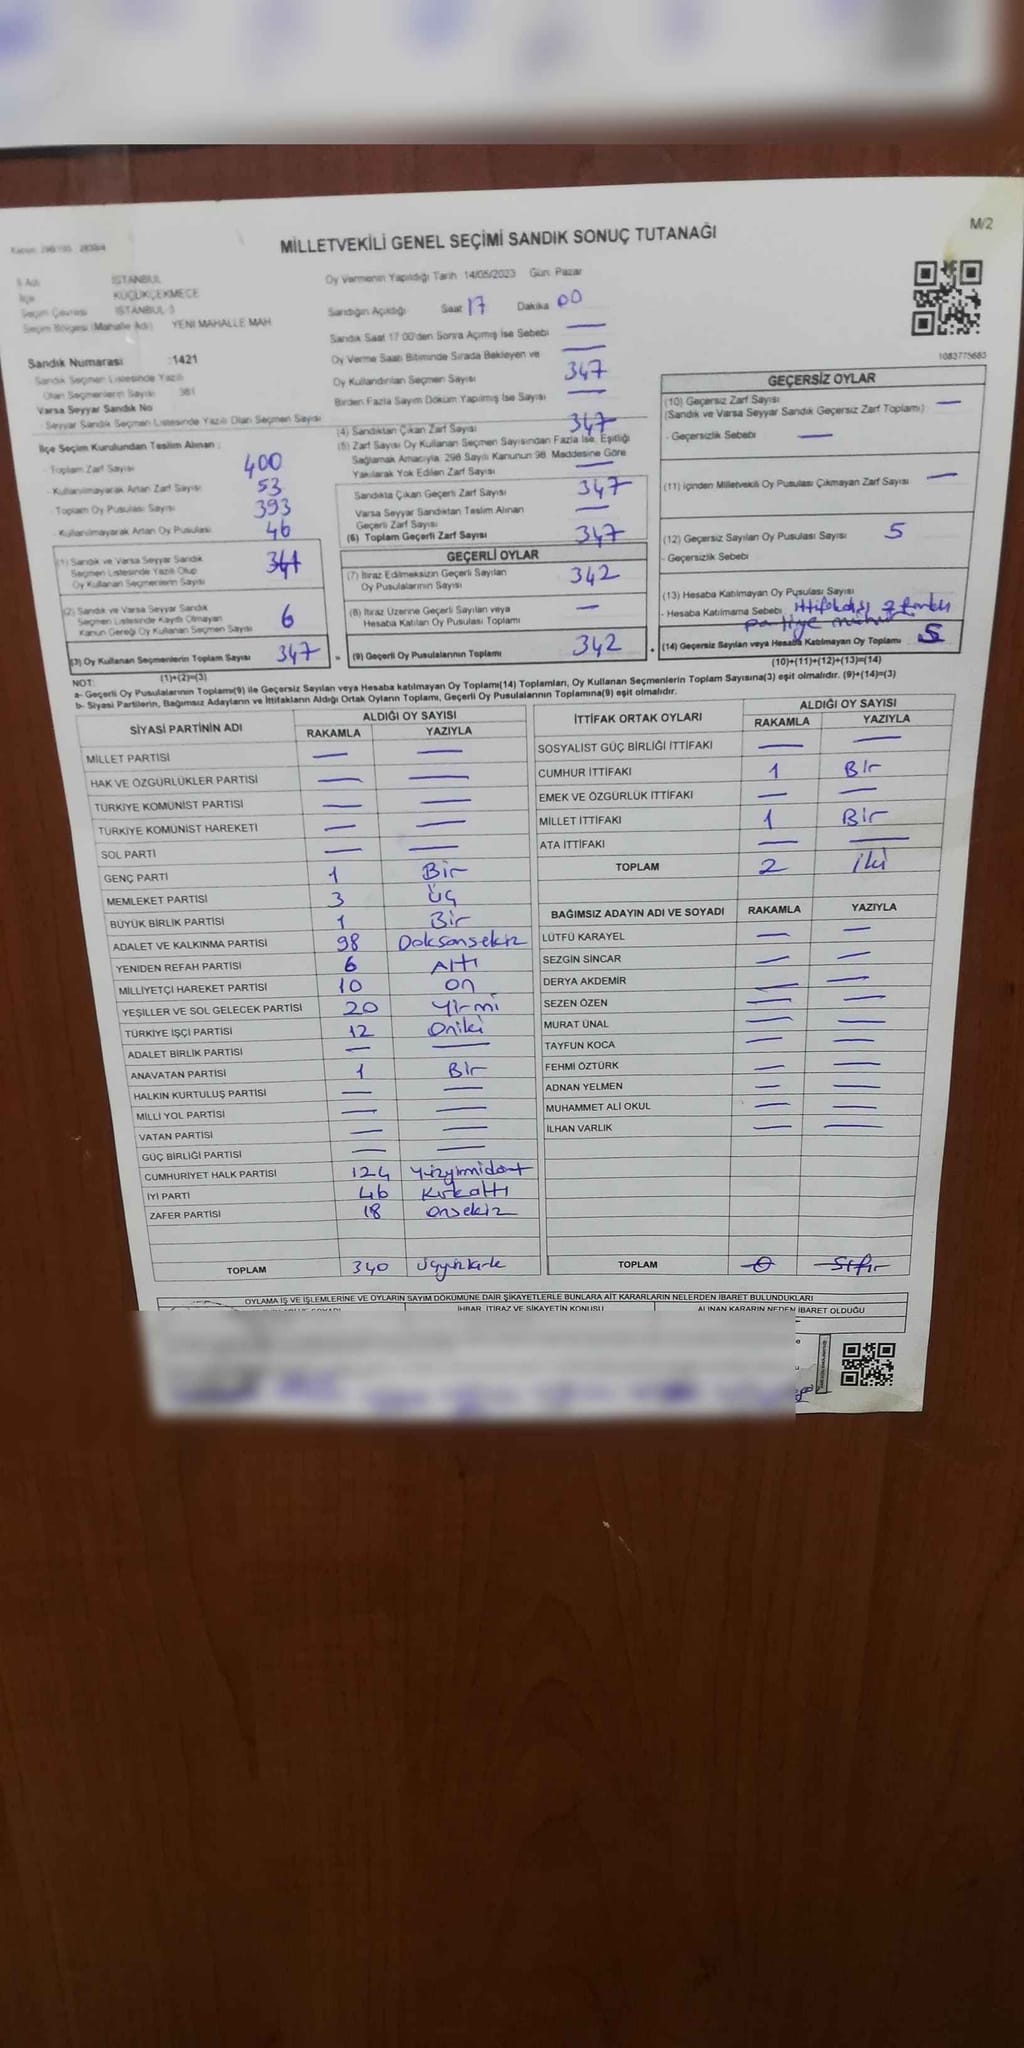 M/2
MİLLETVEKİLİ GENEL SEÇİMİ SANDIK SONUÇ TUTANAĞI
İl Adı İSTANBUL
İlçe KÜÇÜKÇEKMECE
Seçim Çevresi İSTANBUL 3
Seçim Bölgesi (Mahalle Adı) YENİ MAHALLE MAH
Sandık Numarası :1421
Sandık Seçmen Listesinde Yazılı
Olan Seçmenlerin Sayısı 381
Varsa Seyyar Sandık No
Seyyar Sandık Seçmen Listesinde Yazılı Olan Seçmen Sayısı
İlçe Seçim Kurulundan Teslim Alınan ;
- Toplam Zarf Sayısı 400
- Kullanılmayarak Artan Zarf Sayısı 53
- Toplam Oy Pusulası Sayısı 393
- Kullanılmayarak Artan Oy Pusulası 46
(1) Sandık ve Varsa Seyyar Sandık
Seçmen Listesinde Yazılı Olup
Oy Kullanan Seçmenlerin Sayısı 341
(2) Sandık ve Varsa Seyyar Sandık
Seçmen Listesinde Kayıtlı Olmayan
Kanun Gereği Oy Kullanan Seçmen Sayısı 6
(3) Oy Kullanan Seçmenlerin Toplam Sayısı 347
(1)+(2)=(3)
Oy Vermenin Yapıldığı Tarih 14/05/2023 Gün: Pazar
Sandığın Açıldığı Saat 17 Dakika 00
Sandık Saat 17:00'den Sonra Açımış İse Sebebi —
Oy Verme Saati Bitiminde Sırada Bekleyen ve —
Oy Kullandırılan Seçmen Sayısı 347
Birden Fazla Sayım Döküm Yapılmış İse Sayısı —
(4) Sandıktan Çıkan Zarf Sayısı 347
(5) Zarf Sayısı Oy Kullanan Seçmen Sayısından Fazla İse, Eşitliği
Sağlamak Amacıyla, 298 Sayılı Kanunun 98. Maddesine Göre
Yakılarak Yok Edilen Zarf Sayısı —
Sandıkta Çıkan Geçerli Zarf Sayısı 347
Varsa Seyyar Sandıktan Teslim Alınan
Geçerli Zarf Sayısı —
(6) Toplam Geçerli Zarf Sayısı 347
GEÇERLİ OYLAR
(7) İtiraz Edilmeksizin Geçerli Sayılan
Oy Pusulalarının Sayısı 342
(8) İtiraz Üzerine Geçerli Sayılan veya
Hesaba Katılan Oy Pusulası Toplamı —
(9) Geçerli Oy Pusulalarının Toplamı 342
1083775683
GEÇERSİZ OYLAR
(10) Geçersiz Zarf Sayısı —
(Sandık ve Varsa Seyyar Sandık Geçersiz Zarf Toplamı)
- Geçersizlik Sebebi —
(11) İçinden Milletvekili Oy Pusulası Çıkmayan Zarf Sayısı —
(12) Geçersiz Sayılan Oy Pusulası Sayısı 5
- Geçersizlik Sebebi
(13) Hesaba Katılmayan Oy Pusulası Sayısı
- Hesaba Katılmama Sebebi ittifakdışı 2 farklı
partiye mühür
(14) Geçersiz Sayılan veya Hesaba Katılmayan Oy Toplamı 5
(10)+(11)+(12)+(13)=(14)
NOT:
a- Geçerli Oy Pusulalarının Toplamı(9) ile Geçersiz Sayılan veya Hesaba katılmayan Oy Toplamı(14) Toplamları, Oy Kullanan Seçmenlerin Toplam Sayısına(3) eşit olmalıdır. (9)+(14)=(3)
b- Siyasi Partilerin, Bağımsız Adayların ve İttifakların Aldığı Ortak Oyların Toplamı, Geçerli Oy Pusulalarının Toplamına(9) eşit olmalıdır.
SİYASİ PARTİNİN ADI ALDIĞI OY SAYISI
RAKAMLA YAZIYLA
MİLLET PARTİSİ — —
HAK VE ÖZGÜRLÜKLER PARTİSİ — —
TÜRKİYE KOMÜNİST PARTİSİ — —
TÜRKİYE KOMÜNİST HAREKETİ — —
SOL PARTİ — —
GENÇ PARTİ 1 Bir
MEMLEKET PARTİSİ 3 Üç
BÜYÜK BİRLİK PARTİSİ 1 Bir
ADALET VE KALKINMA PARTİSİ 98 Doksansekiz
YENİDEN REFAH PARTİSİ 6 Altı
MİLLİYETÇİ HAREKET PARTİSİ 10 on
YEŞİLLER VE SOL GELECEK PARTİSİ 20 Yirmi
TÜRKİYE İŞÇİ PARTİSİ 12 Oniki
ADALET BİRLİK PARTİSİ — —
ANAVATAN PARTİSİ 1 Bir
HALKIN KURTULUŞ PARTİSİ — —
MİLLİ YOL PARTİSİ — —
VATAN PARTİSİ — —
GÜÇ BİRLİĞİ PARTİSİ — —
CUMHURİYET HALK PARTİSİ 124 Yüzyirmidört
İYİ PARTİ 46 Kırkaltı
ZAFER PARTİSİ 18 Onsekiz
TOPLAM 340 Üçyüzkırk
İTTİFAK ORTAK OYLARI ALDIĞI OY SAYISI
RAKAMLA YAZIYLA
SOSYALİST GÜÇ BİRLİĞİ İTTİFAKI — —
CUMHUR İTTİFAKI 1 Bir
EMEK VE ÖZGÜRLÜK İTTİFAKI — —
MİLLET İTTİFAKI 1 Bir
ATA İTTİFAKI — —
TOPLAM 2 iki
BAĞIMSIZ ADAYIN ADI VE SOYADI RAKAMLA YAZIYLA
LÜTFÜ KARAYEL — —
SEZGİN SİNCAR — —
DERYA AKDEMİR — —
SEZEN ÖZEN — —
MURAT ÜNAL — —
TAYFUN KOCA — —
FEHMİ ÖZTÜRK — —
ADNAN YELMEN — —
MUHAMMET ALİ OKUL — —
İLHAN VARLIK — —
TOPLAM 0 Sıfır
OYLAMA İŞ VE İŞLEMLERİNE VE OYLARIN SAYIM DÖKÜMÜNE DAİR ŞİKAYETLERLE BUNLARA AİT KARARLARIN NELERDEN İBARET BULUNDUKLARI
İHBAR, İTİRAZ VE ŞİKAYETİN KONUSU ALINAN KARARIN NEDEN İBARET OLDUĞU